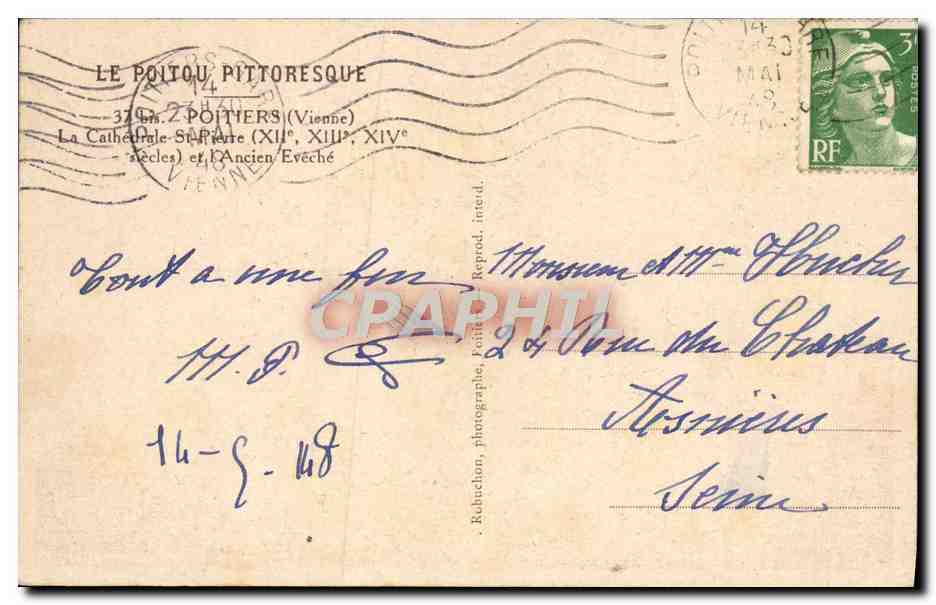 LE POITOU PITTORESQUE
37 bis. POITIERS (Vienne)
La Cathédrale St-Pierre (XIIe, XIIIe, XIVe
siècles) et l'Ancien Evêché
POITIERS GARE
14
23H30
MAI
48
VIENNE
14
23H30
MAI
48
VIENNE
3
POSTES
RF
Tout a une fin
M. P.
14-5-48
Robuchon, photographe, Poitiers Reprod. interd.
Monsieur et Mme
24 Rue du Chateau
Asnières
Seine
CPAPHIL